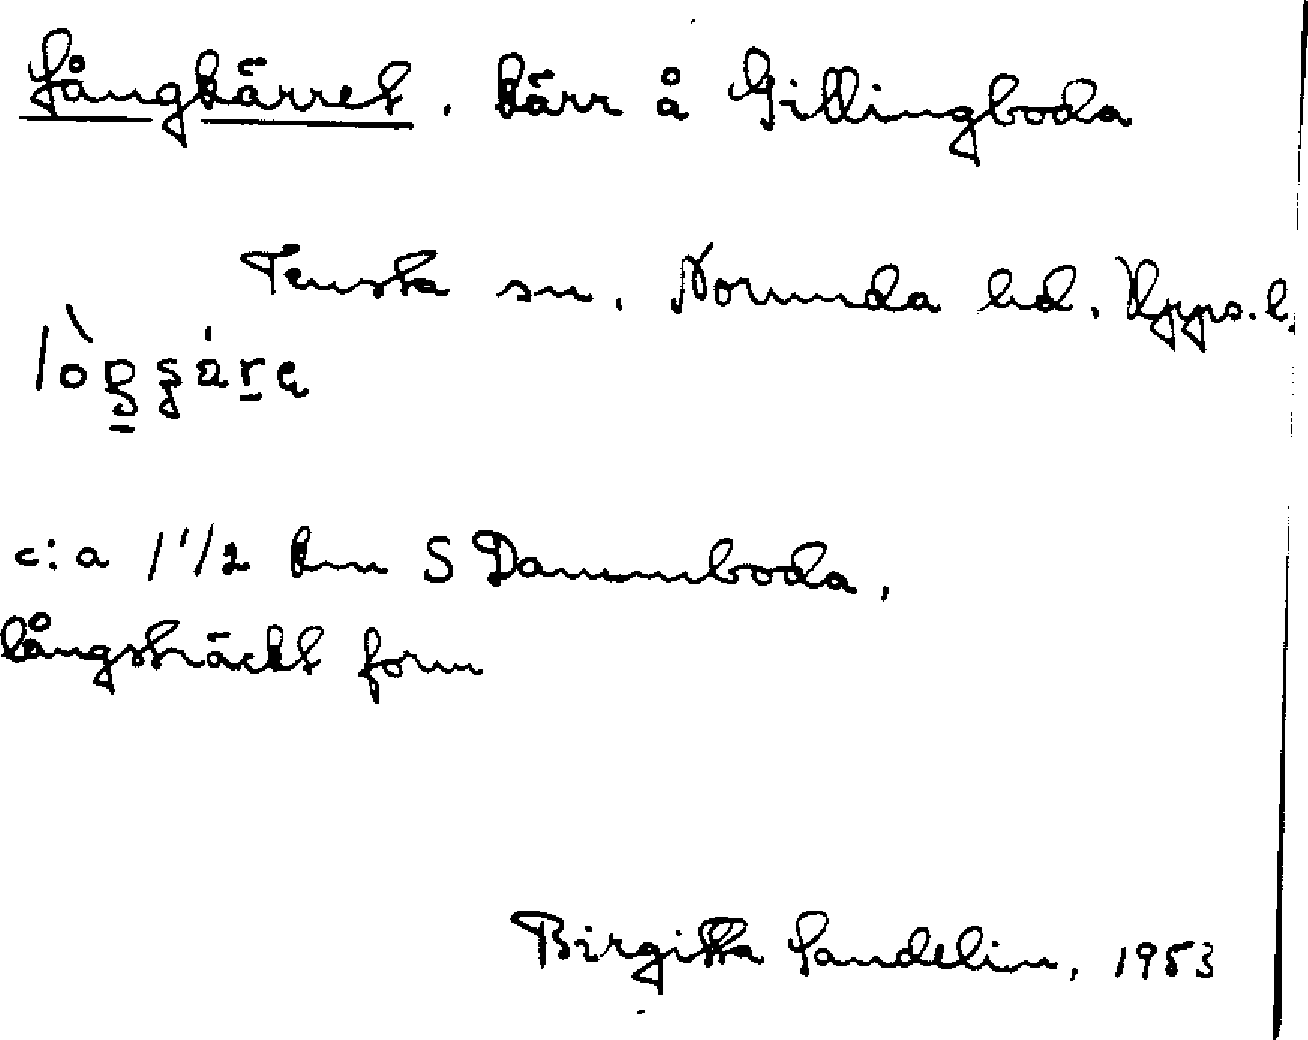 Långkärret. kärr å Gillingboda
Tensta sn. Norunda hd. Upps. l.
c:a 1 1/2 km S Dammboda,
långsträckt form
Birgitta Sandelin, 1953